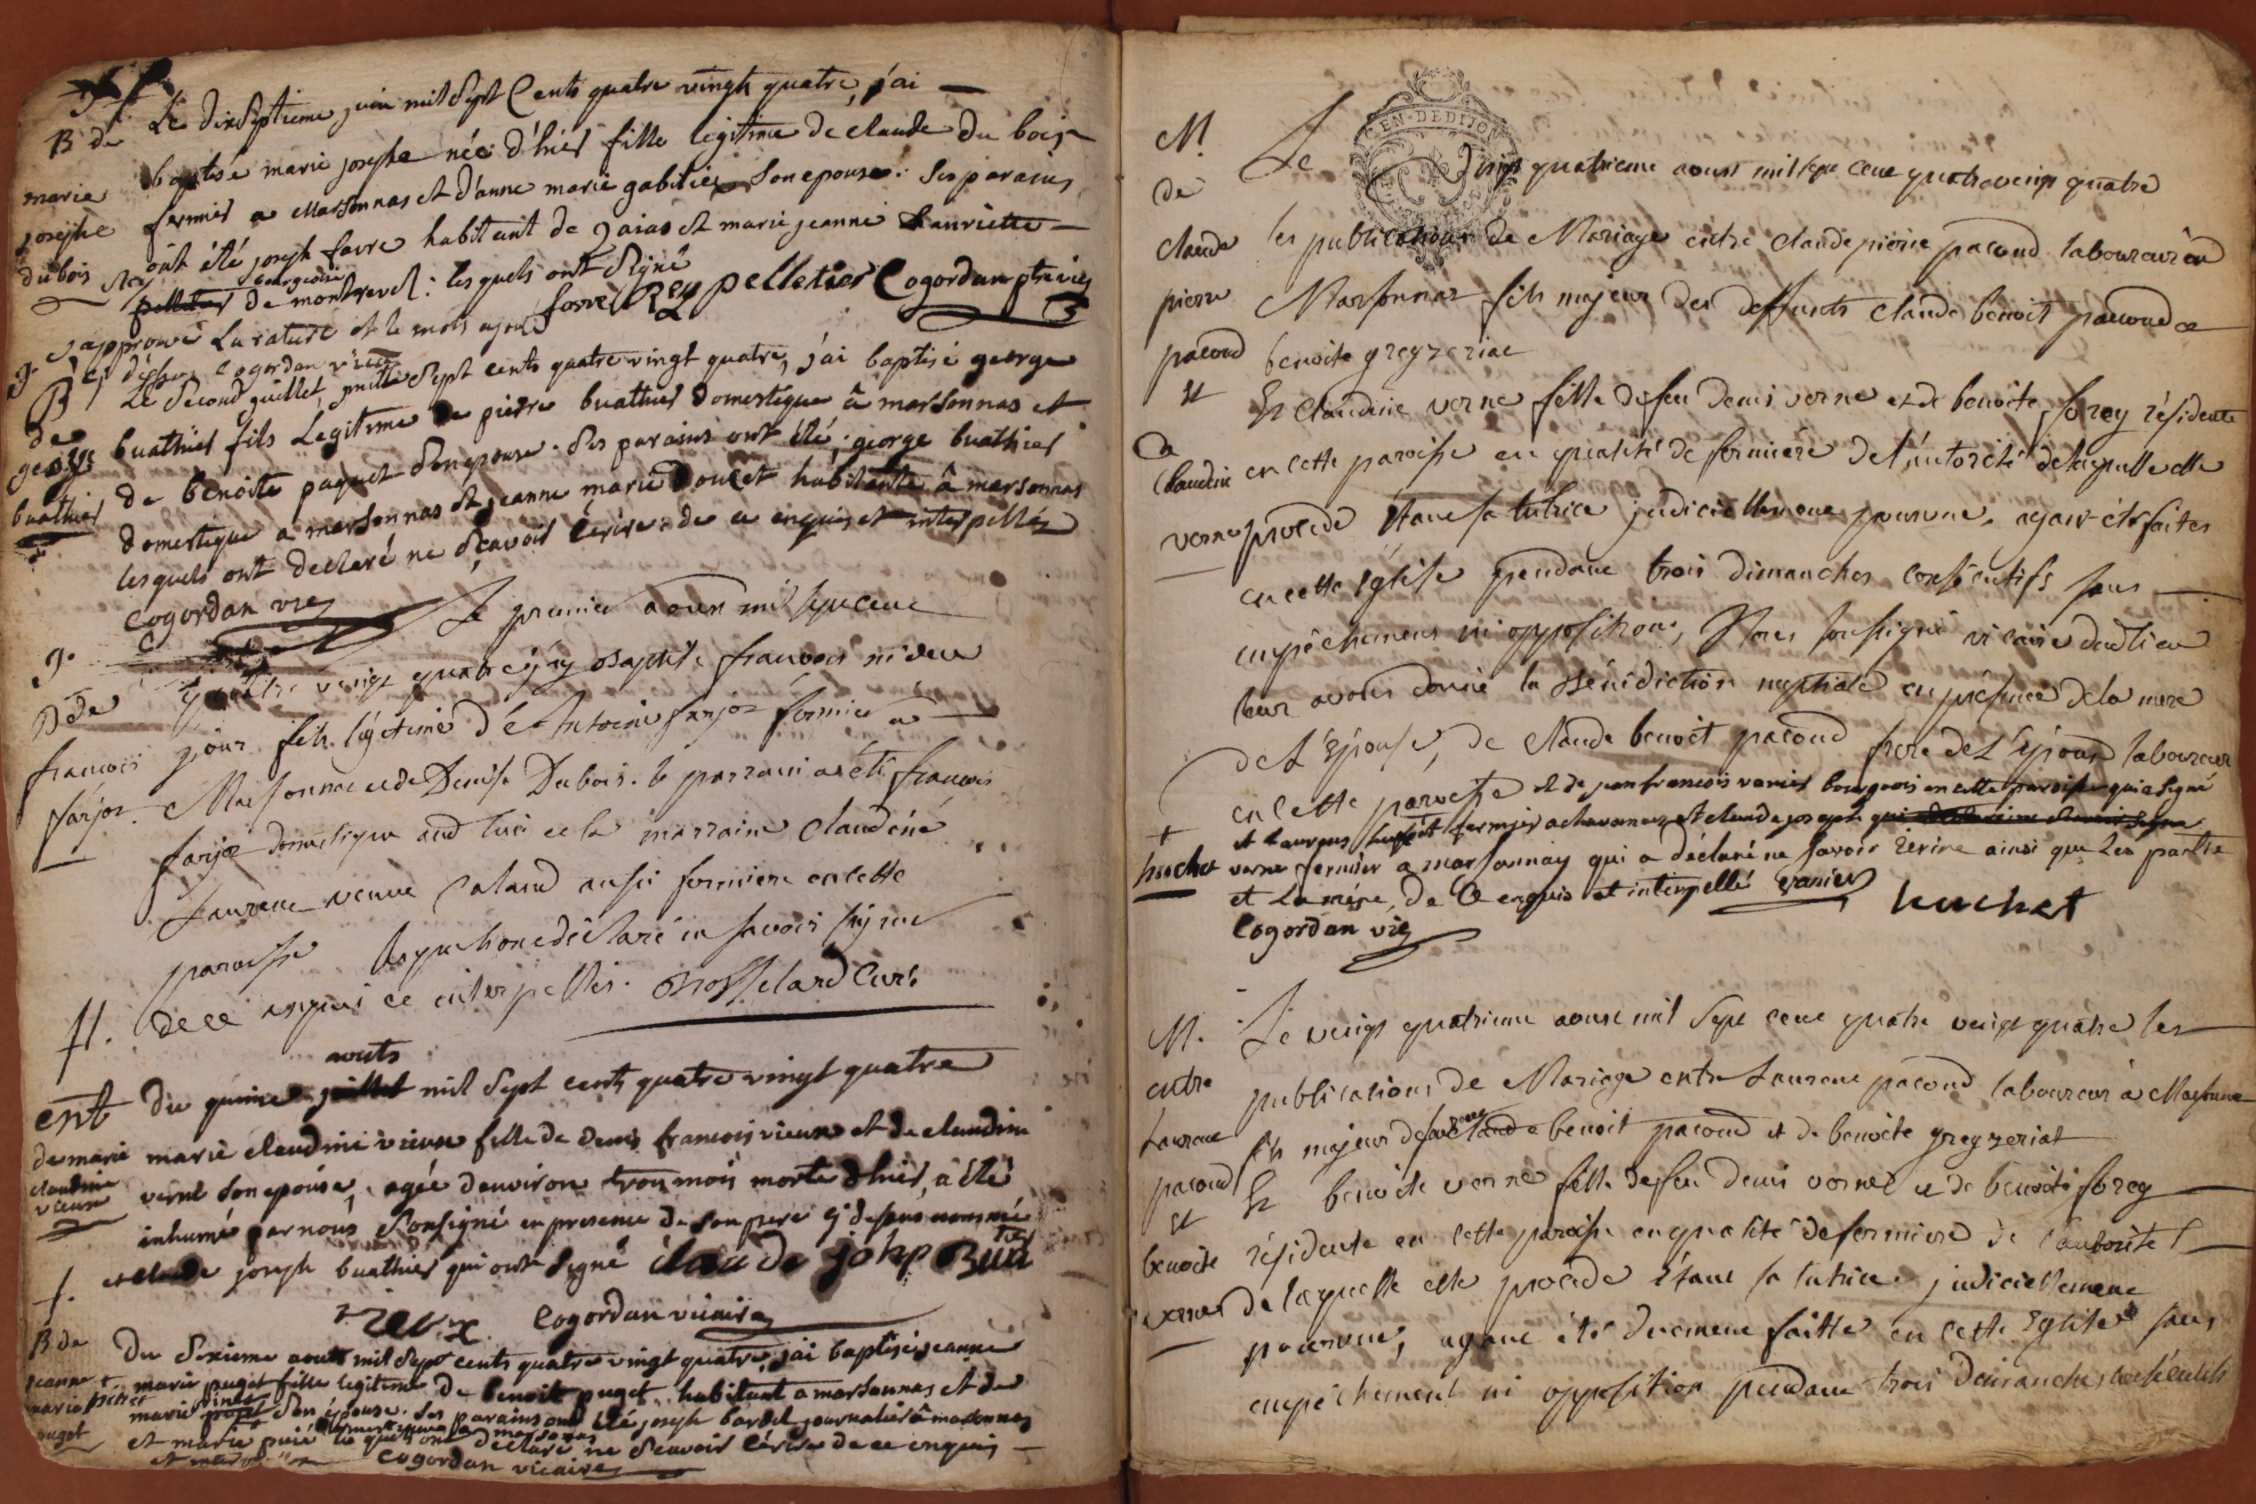 B de
marie
josephe
dubois
Le dixseptieme juin mil Sept Cents quatre vingt quatre, j'ai
baptisé marie josephe née d'hier fille legitime de claude Du bois
fermier a Marsonnas et d'anne marie gabilier Son epouse. Ses parains
ont été joseph favre habitant de et marie jeanne
bourgeois
pelletier de montrevel: lesquels ont Signé
favre Rey pelletier Cogordan ptre vic
j'approuve La rature et le mots ajouté
cy dessus Cogordan vicre
B
de
george
buathier
Le Second juillet mille Sept cents quatre vingt quatre, j'ai baptisé george
buathier fils Legitime de pierre buathier Domestique à marsonnas et
de benoite paquet Son epouse. Ses parains ont été, george buathier
Domestique a marsonnas et jeanne marie Doucet habitante à marsonnas
lesquels ont declaré ne Sçavoir Ecrire de ce enquis et interpellés
Cogordan vic
B de
francois
farjot
Le premier aoust mil sept cent
quatre vingt quatre j'ay Baptisé francois né deux
jour fils légitime d'Antoine farjot fermier a
Marsonnas et de Denise Dubois. le parrain a été francois
farjot domestique aud lieu et la marraine Claudine
Laurent veuve Caland aussi fermiere en cette
paroisse lesquels ont déclaré ne savoir signer
de ce enquis et interpellés. curé
ent
de marie
claudine
vieux
aouts
du quinze juillet mil Sept cents quatre vingt quatre
marie claudine vieux fille de Denis francois vieux et de claudine
verne Son epouse, agée d'environ trois mois morte d'hier, a été
inhumé par nous Soussigné en presence de Son pere cy dessus nommé
et claude joseph buathier qui ont Signé claude johp Buatier
vieux Cogordan vicaire
B de
jeanne
marie
puget
Du Sixieme aout mil Sept cents quatre vingt quatre, j'ai baptisé jeanne
marie puget fille legitime De benoit puget habitant a marsonnas et de
marie Son épouse. Ses parains ont été joseph bardet journalier à marsonnas
et marie domestique a marsonas
lesquels ont declaré ne Scavoir Ecrire de ce enquis
Cogordan vicaire
M.
de
claude
pierre
pacoud
et
De
Claudine
verne
GEN. DE DIJON
Le vingt quatrieme aoust mil sept cent quatre vingt quatre
les publications de Mariage entre claude pierre pacoud laboureur en
Marsonnas fils majeur des deffunts claude benoit pacoud et
benoite greyzeriat
Et Claudine verne fille de feu denis verne et de benoite forey résidente
en cette paroisse en qualité de fermiere de l'autorité de laquelle elle
procede étant sa tutrice judiciellement pourvue, ayant été faites
en cette Eglise pendant trois dimanches consécutifs sans
empêchement ni opposition, Nous soussigné vicaire dud lieu
leur avons donné la Bénédiction nuptiale en présence de la mere
de L'Epouse, de claude benoit pacoud frere de L'Epoux laboureur
en cette paroisse et de jean francois varnier bourgeois en cette paroisse qui a Signé
+
huchet
et Laurens huchet fermier a chavannes et claude joseph
verne fermier a marsonnay qui a déclaré ne savoir Ecrire ainsi que Les parties
et La mère, De Ce enquis et interpellé varnier huchet
Cogordan vic
M.
entre
Laurent
pacoud
et
benoite
verne
Le vingt quatrieme aoust mil Sept cent quatre vingt quatre les
publications de Mariage entre Laurent pacoud laboureur à Marsonnas
fils majeur de feu Claude benoit pacoud et de benoite greyzeriat
Et benoite verne fille de feu denis verne et de benoite forey
résidente en cette paroisse en qualité de fermiere de l'autorité
de laquelle elle procede étant sa tutrice judiciellement
pourvue, ayant été duement faitte en cette Eglise sans
empêchement ni opposition pendant trois dimanches consécutifs